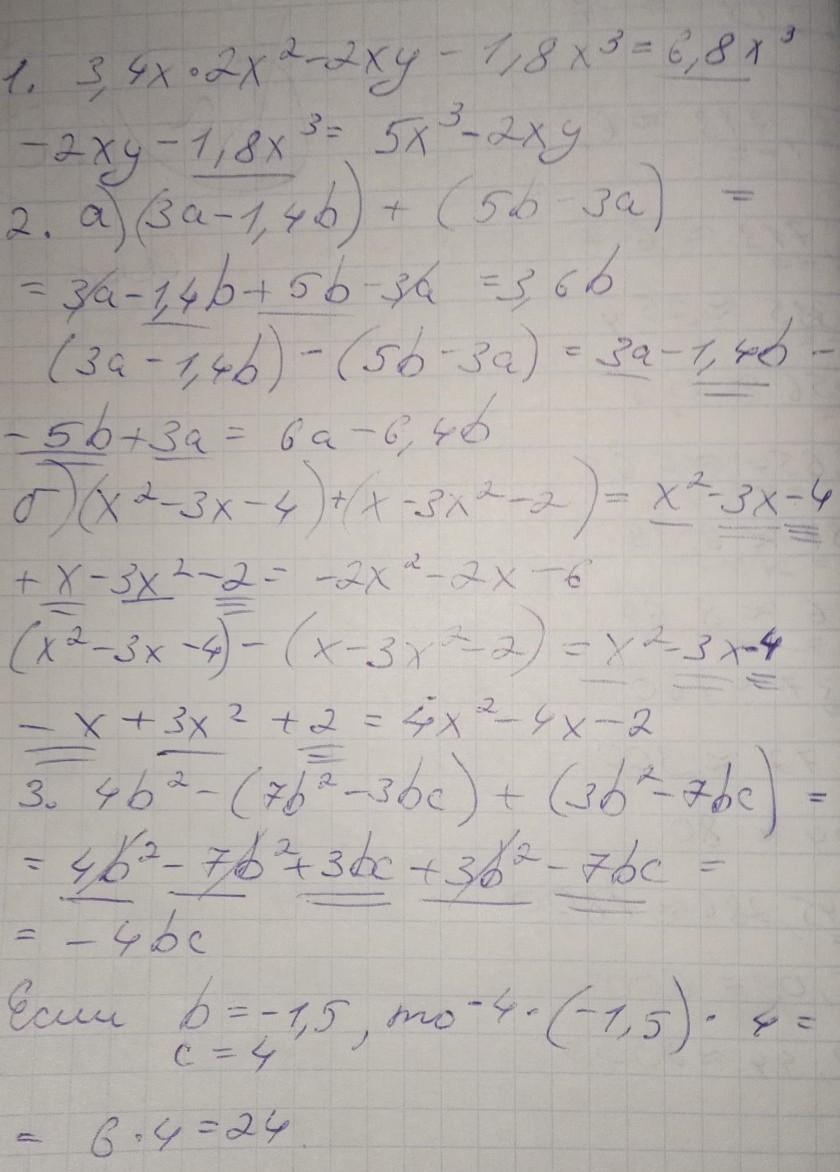 1. 3,4x·2x²-2xy-1,8x³=6,8x³
-2xy-1,8x³= 5x³-2xy
2. а)(3a-1,4b)+(5b-3a) =
=3a-1,4b+5b-3a =3,6b
(3a-1,4b)-(5b-3a)=3a-1,4b-
-5b+3a= 6a-6,4b
б)(x²-3x-4)+(x-3x²-2)= x²-3x-4
+x-3x²-2= -2x²-2x-6
(x²-3x-4)-(x-3x²-2)=x²-3x-4
-x+3x²+2=4x²-4x-2
3. 4b²-(7b²-3bc)+(3b²-7bc)=
=4b²-7b²+3bc+3b²-7bc=
= -4bc
Если b=-1,5, то -4·(-1,5)·4=
c=4
= 6·4=24